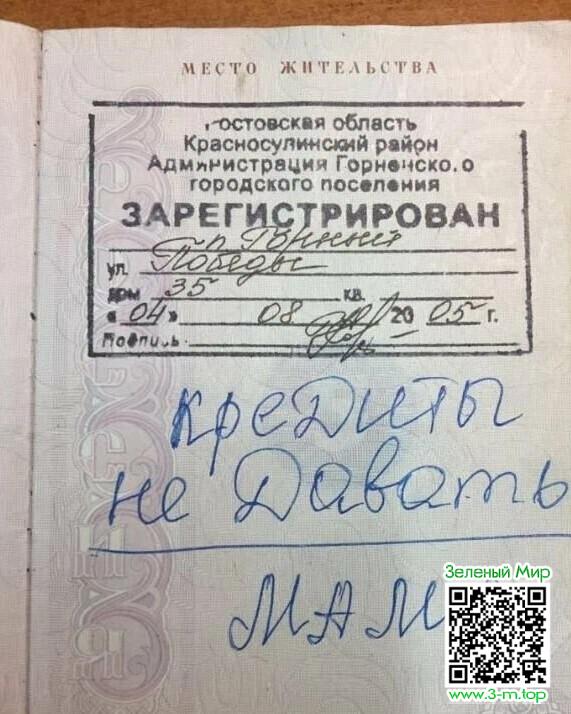 МЕСТО ЖИТЕЛЬСТВА
Ростовская область
Красносулинский район
Администрация Горненского
городского поселения
ЗАРЕГИСТРИРОВАН
п. Горный
ул. Победы
дом 35 кв.
«04» 08 2005 г.
Подпись
кредиты
не давать
МАМ
Зеленый Мир
www.3-m.top